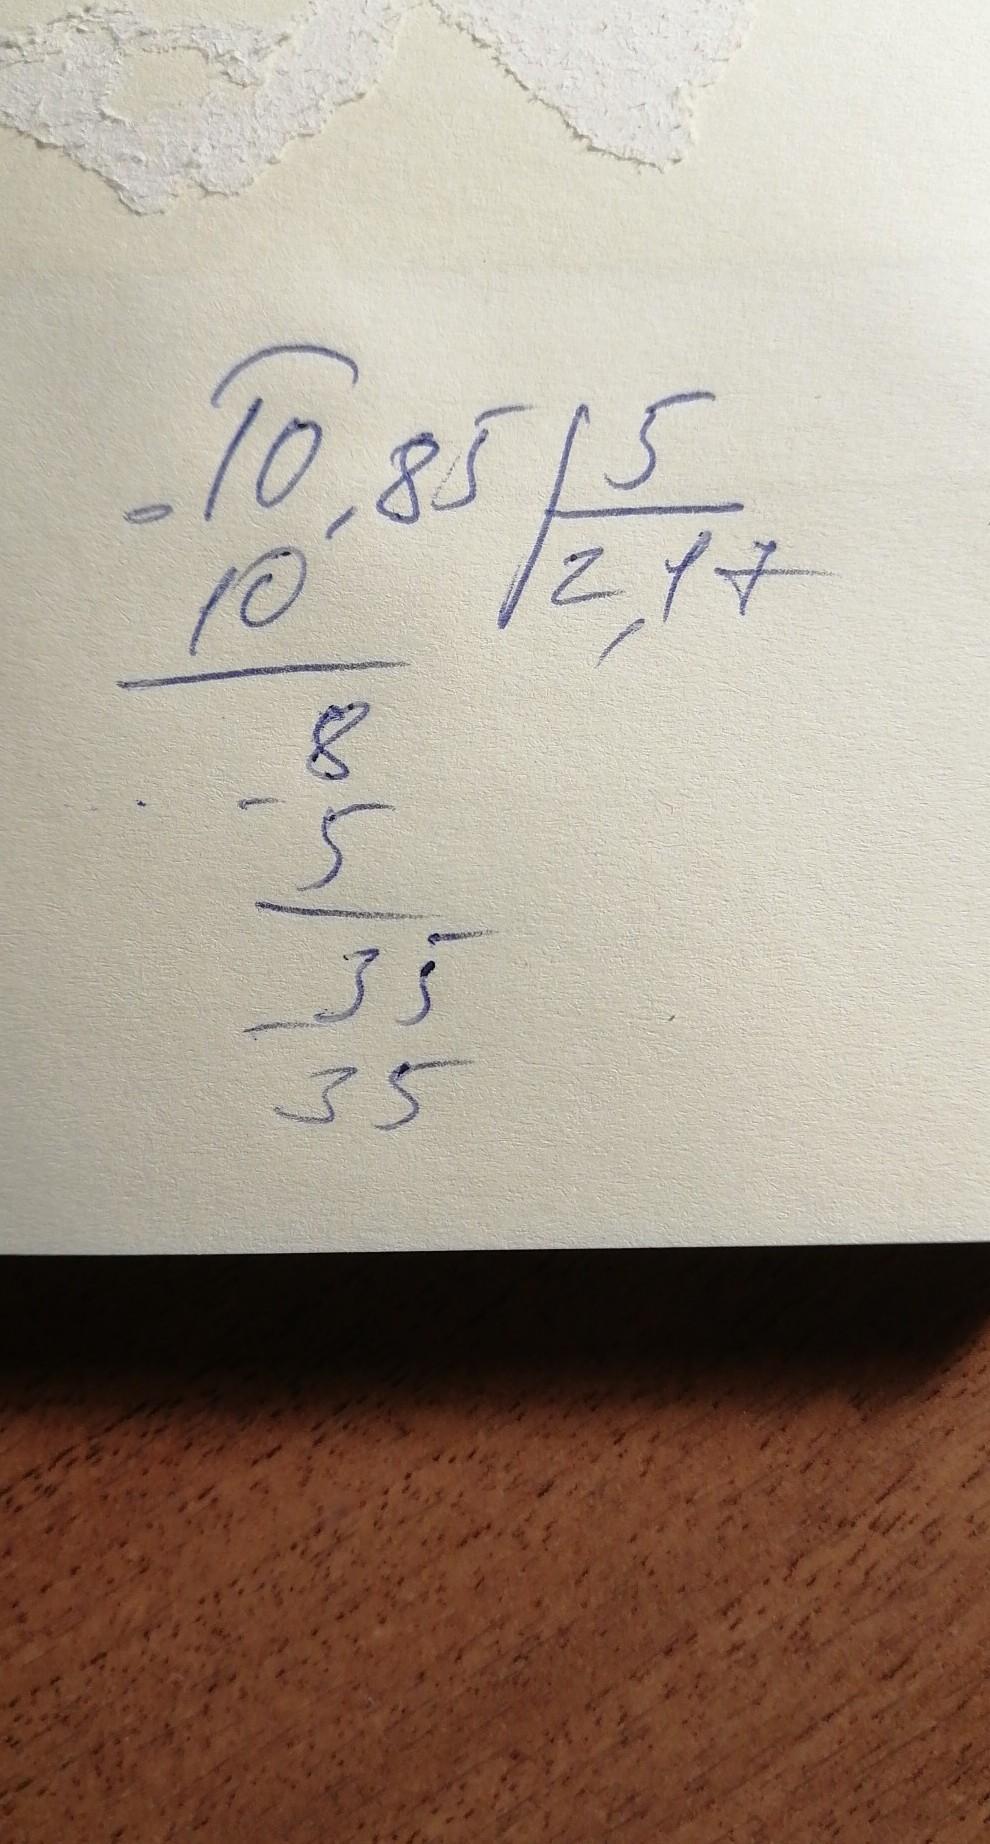 -10,85 | 5
10 | 2,17
8
- 5
35
- 35